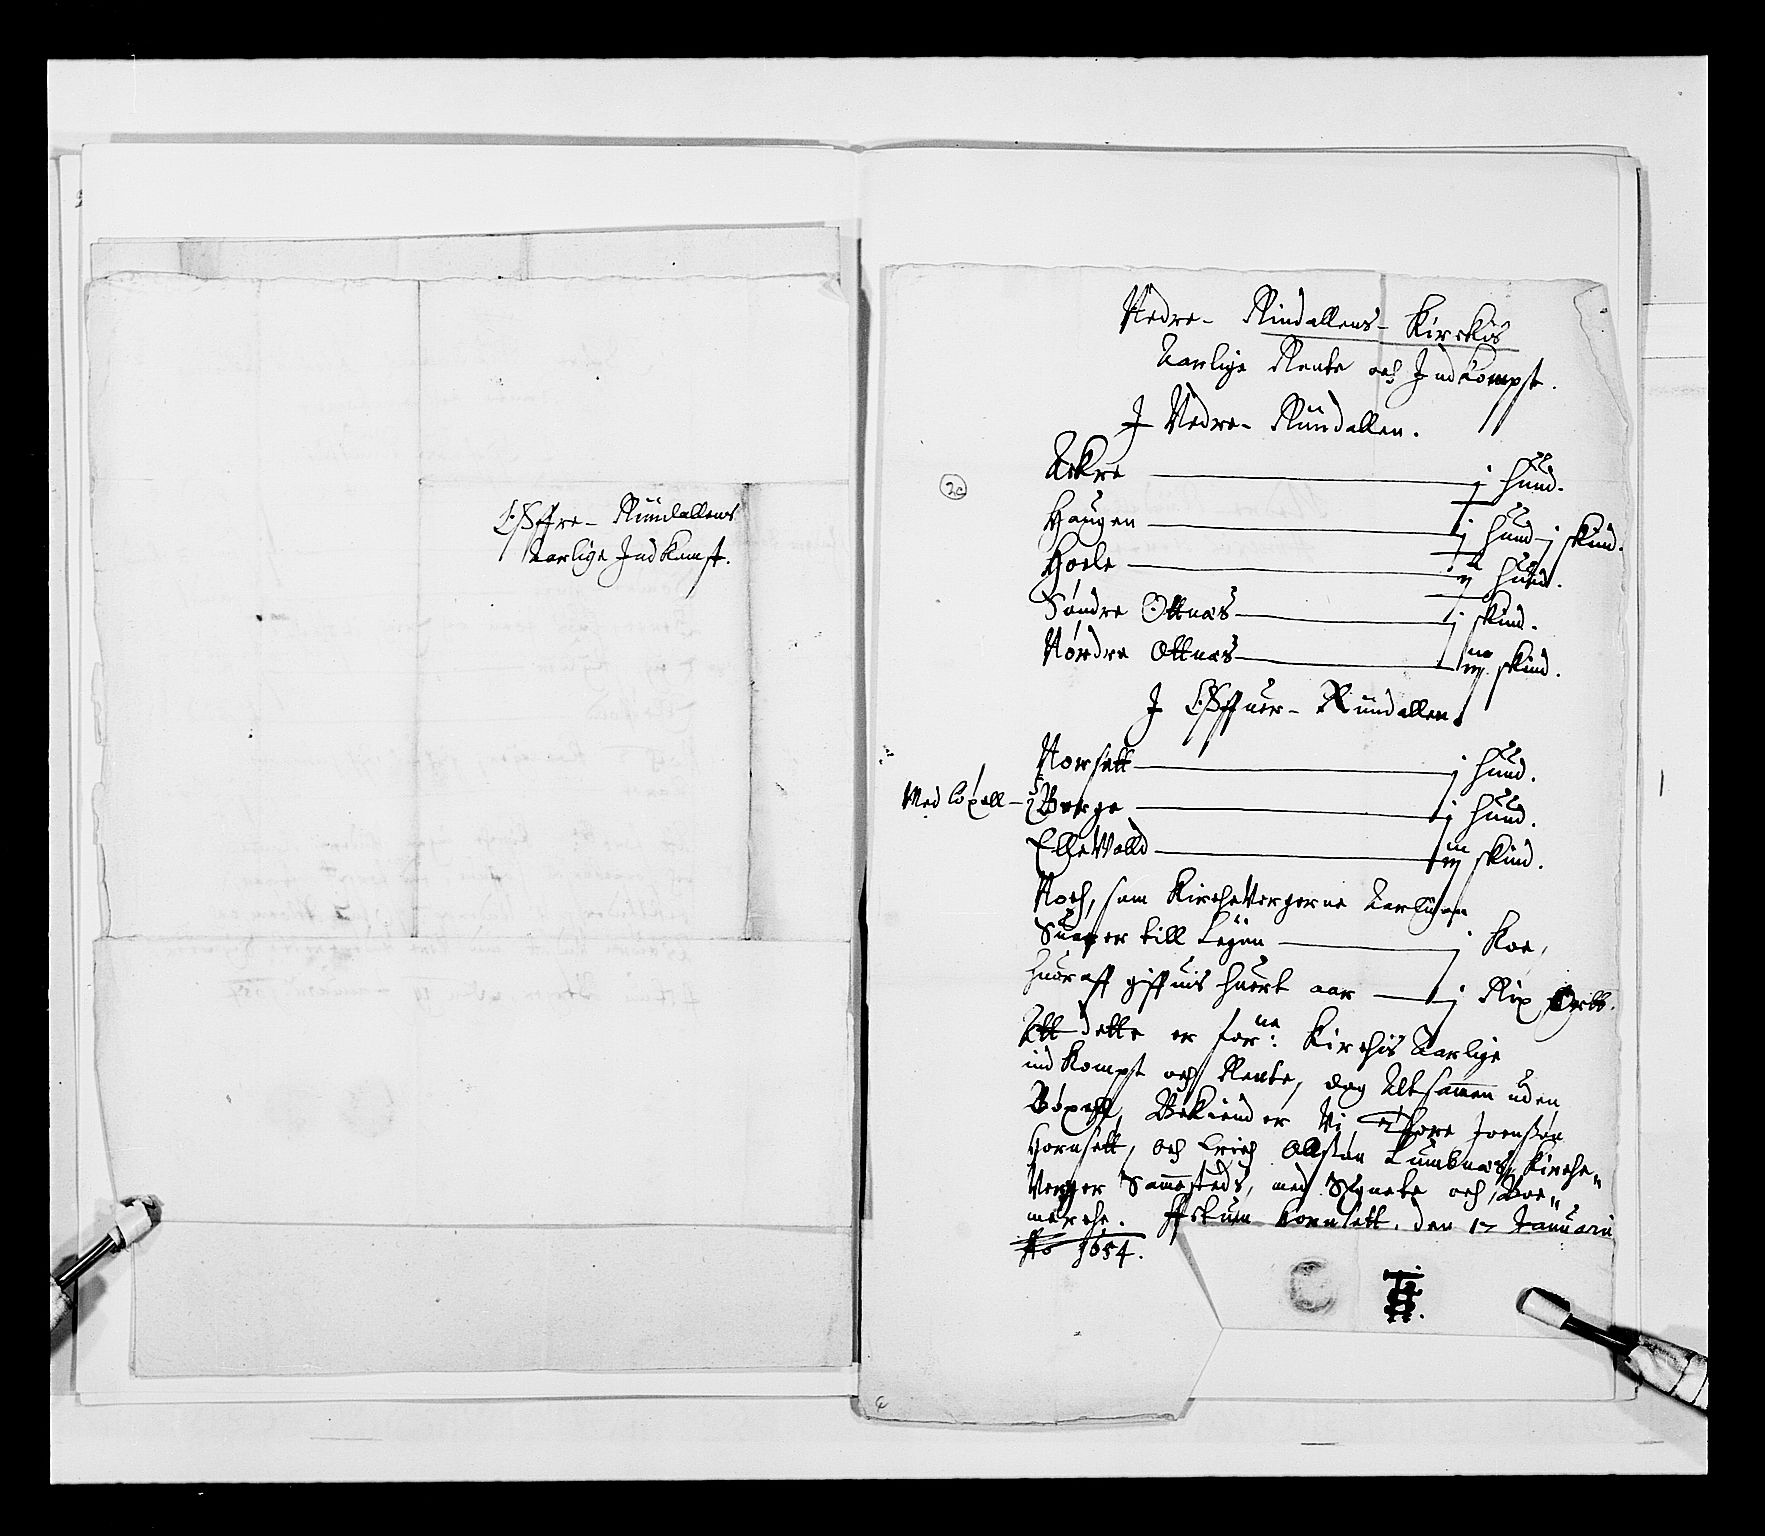 Øffre- Rindallens
Aarlige Indkumst.
2c
Nedre- Rindallens- Kirckis
Aarlige Rente och Indkompst.
J Nedre- Rindallen.
Askre — j hund.
Haugen — j hund j skind.
Hoele — ij hund.
Søndre Ottnæs — j skind.
Nørdre Ottnæs — iij skind.
J Øffuer- Rindallen.
Norsett — j hund.
Med bøxell — Berge — j hund.
Ellevolld — iij skind.
Noch, som Kirchevergerne Aarligen
Suarer till Leyen — j Koe,
huoraff giffuis huert aar — j Rix Ortt.
Att dette er forne: Kirchis Aarlige
indkompst och Rente, dog Altsamen uden
Bøxell, Bekiender Vi Thore Joensøn
Hornsett, och Erich Ollsøn Lumbnæs, Kirche„
Verger Samesteds, med Sygnete och Boe„
merche. Hornsett. den 17 Januarii
Ao 1654.